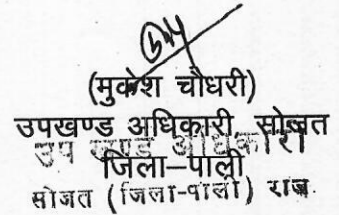 (मुकेश चौधरी)
उपखण्ड अधिकारी, सोजत
उप खण्ड अधिकारी
जिला–पाली
सोजत (जिला-पाली) राज.